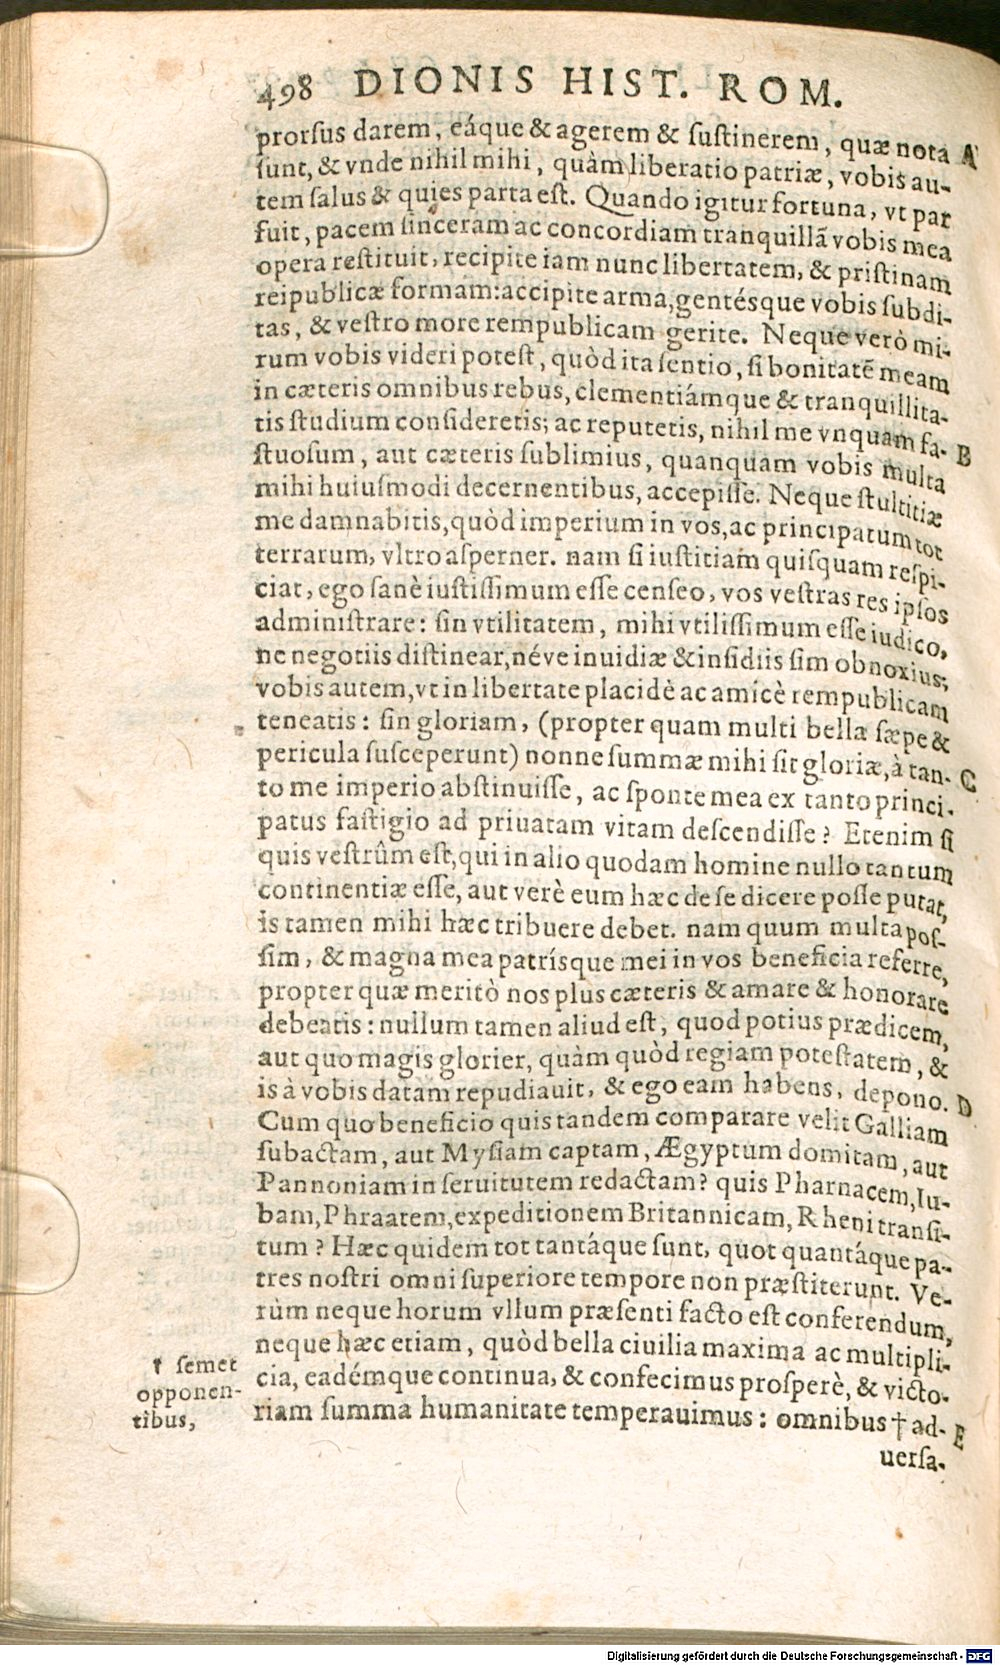 498 DIONIS HIST. ROM.
prorſus darem, eáque & agerem & ſuſtinerem, quæ nota A
ſunt, & vnde nihil mihi, quàm liberatio patriæ, vobis au-
tem ſalus & quies parta eſt. Quando igitur fortuna, vt par
fuit, pacem ſinceram ac concordiam tranquillã vobis mea
opera reſtituit, recipite iam nunc libertatem, & priſtinam
reipublicæ formam: accipite arma, gentéſque vobis ſubdi-
tas, & veſtro more rempublicam gerite. Neque verò mi-
rum vobis videri poteſt, quòd ita ſentio, ſi bonitatẽ meam
in cæteris omnibus rebus, clementiámque & tranquillita-
tis ſtudium conſideretis; ac reputetis, nihil me vnquam fa- B
ſtuoſum, aut cæteris ſublimius, quanquam vobis multa
mihi huiuſmodi decernentibus, accepiſſe. Neque ſtultitiæ
me damnabitis, quòd imperium in vos, ac principatum tot
terrarum, vltro aſperner. nam ſi iuſtitiam quiſquam reſpi-
ciat, ego ſanè iuſtiſſimum eſſe cenſeo, vos veſtras res ipſos
adminiſtrare: ſin vtilitatem, mihi vtiliſſimum eſſe iudico,
ne negotiis diſtinear, néve inuidiæ & inſidiis ſim obnoxius;
vobis autem, vt in libertate placidè ac amícè rempublicam
teneatis: ſin gloriam, (propter quam multi bella ſæpe &
pericula ſuſceperunt) nonne ſummæ mihi ſit gloriæ, à tan- C
to me imperio abſtinuiſſe, ac ſponte mea ex tanto princi-
patus faſtigio ad priuatam vitam deſcendiſſe? Etenim ſi
quis veſtrûm eſt, qui in alio quodam homine nullo tantum
continentiæ eſſe, aut verè eum hæc de ſe dicere poſſe putat,
is tamen mihi hæc tribuere debet. nam quum multa poſ-
ſim, & magna mea patríſque mei in vos beneficia referre,
propter quæ meritò nos plus cæteris & amare & honorare
debeatis: nullum tamen aliud eſt, quod potius prædicem,
aut quo magis glorier, quàm quòd regiam poteſtatem, &
is à vobis datam repudiauit, & ego eam habens, depono. D
Cum quo beneficio quis tandem comparare velit Galliam
ſubactam, aut Myſiam captam, Ægyptum domitam, aut
Pannoniam in ſeruitutem redactam? quis Pharnacem, Iu-
bam, Phraatem, expeditionem Britannicam, Rheni tranſi-
tum? Hæc quidem tot tantáque ſunt, quot quantáque pa-
tres noſtri omni ſuperiore tempore non præſtiterunt. Ve-
rùm neque horum vllum præſenti facto eſt conferendum,
neque hæc etiam, quòd bella ciuilia maxima ac multipli-
cia, eadémque continua, & confecimus proſperè, & victo-
riam ſumma humanitate temperauimus: omnibus † ad- E
uerſa-
† ſemet
opponen-
tibus,
Digitalisierung gefördert durch die Deutsche Forschungsgemeinschaft - DFG